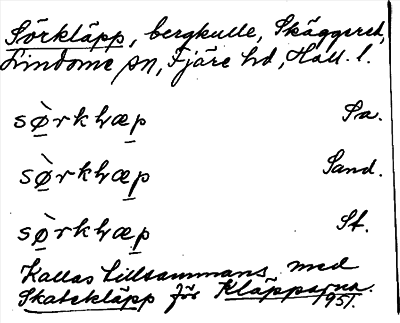 Sörkläpp, bergkulle, Skäggered,
Lindome sn, Fjäre hd, Hall. l.
sø̀rkḷæp Sa.
sø̀rkḷæp Sand.
sø̀rkḷæp St.
Kallas tillsammans med
Skatekläpp för Kläpparna.
1951.